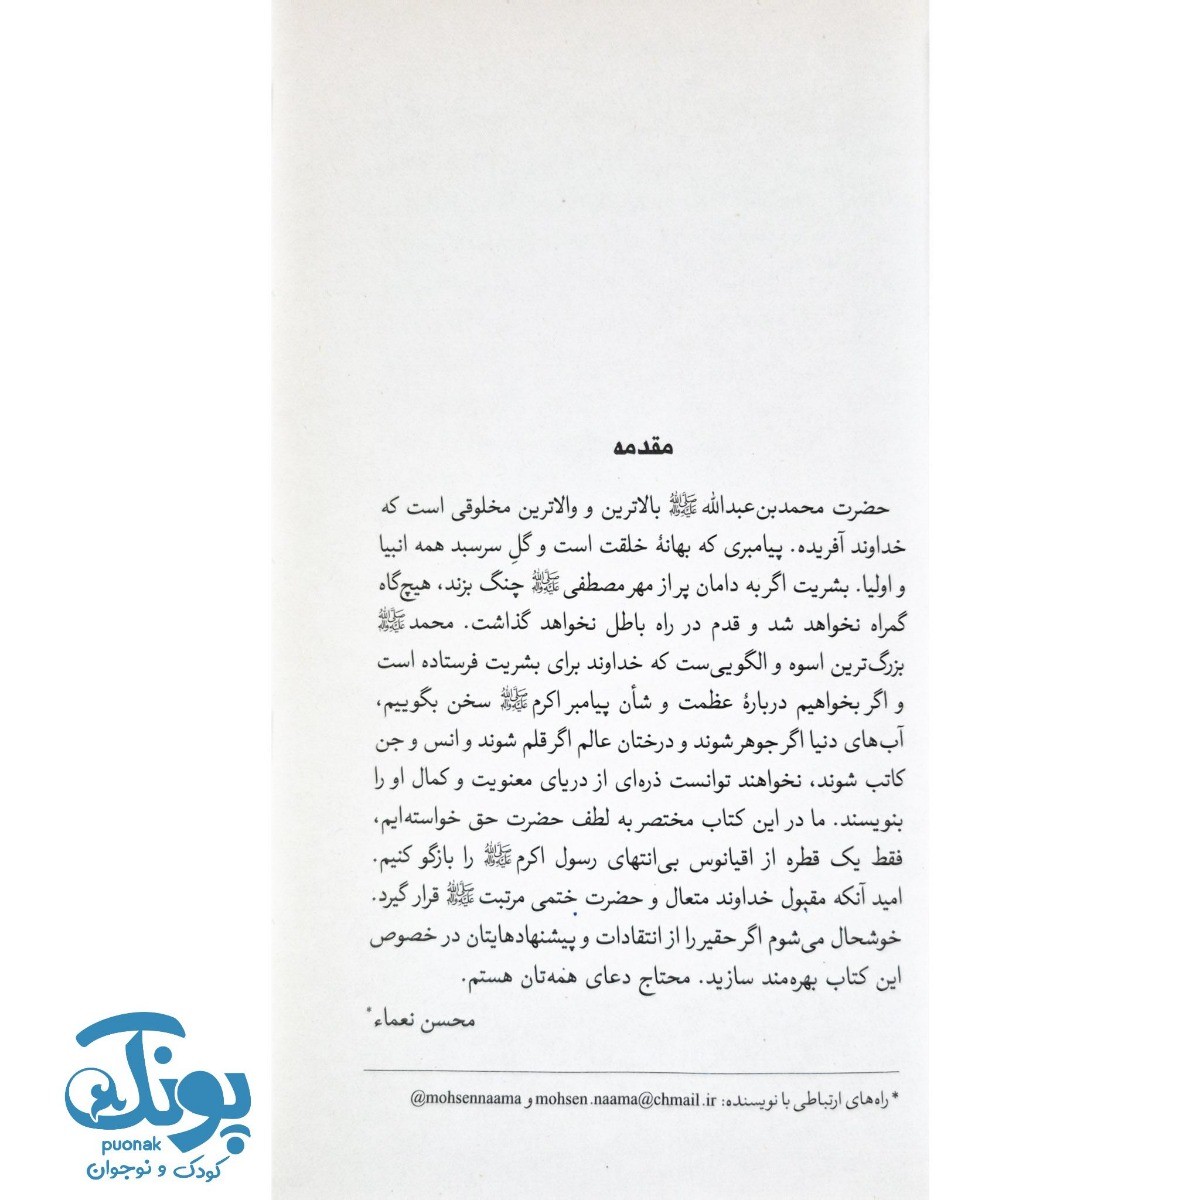 مقدمه
حضرت محمدبن‌عبدالله ﷺ بالاترین و والاترین مخلوقی است که
خداوند آفریده. پیامبری که بهانهٔ خلقت است و گلِ سرسبد همه انبیا
و اولیا. بشریت اگر به دامان پر از مهر مصطفی ﷺ چنگ بزند، هیچ‌گاه
گمراه نخواهد شد و قدم در راه باطل نخواهد گذاشت. محمد ﷺ
بزرگ‌ترین اسوه و الگویی‌ست که خداوند برای بشریت فرستاده است
و اگر بخواهیم دربارهٔ عظمت و شأن پیامبر اکرم ﷺ سخن بگوییم،
آب‌های دنیا اگر جوهر شوند و درختان عالم اگر قلم شوند و انس و جن
کاتب شوند، نخواهند توانست ذره‌ای از دریای معنویت و کمال او را
بنویسند. ما در این کتاب مختصر به لطف حضرت حق خواسته‌ایم،
فقط یک قطره از اقیانوس بی‌انتهای رسول اکرم ﷺ را بازگو کنیم.
امید آنکه مقبول خداوند متعال و حضرت ختمی مرتبت ﷺ قرار گیرد.
خوشحال می‌شوم اگر حقیر را از انتقادات و پیشنهادهایتان در خصوص
این کتاب بهره‌مند سازید. محتاج دعای همه‌تان هستم.
محسن نعماء*
* راه‌های ارتباطی با نویسنده: mohsen.naama@chmail.ir و @mohsennaama
پونک
puonak
کودک و نوجوان